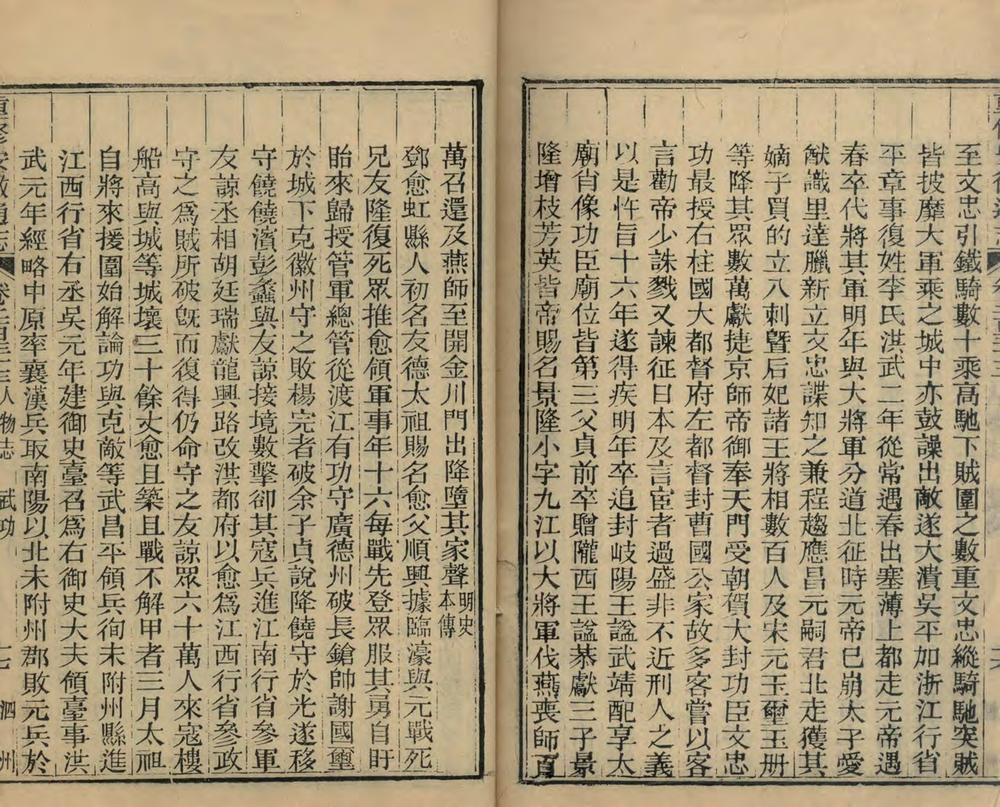 至文忠引鐵騎數十乘高馳下賊圍之數重文忠縱騎馳突賊
皆披靡大軍乘之城中亦鼓譟出敵遂大潰吳平加浙江行省
平章事復姓李氏洪武二年從常遇春出塞薄上都走元帝遇
春卒代將其軍明年與大將軍分道北征時元帝已崩太子愛
猷識里達臘新立文忠諜知之兼程趨應昌元嗣君北走獲其
嫡子買的立八剌曁后妃諸王將相數百人及宋元玉璽玉册
等降其眾數萬獻捷京師帝御奉天門受朝賀大封功臣文忠
功最授右柱國大都督府左都督封曹國公家故多客嘗以客
言勸帝少誅戮又諫征日本及言宦者過盛非不近刑人之義
以是忤旨十六年遂得疾明年卒追封岐陽王諡武靖配享太
廟肖像功臣廟位皆第三父貞前卒贈隴西王諡恭獻三子景
隆增枝芳英皆帝賜名景隆小字九江以大將軍伐燕喪師百
萬召還及燕師至開金川門出降墮其家聲明史本傳
鄧愈虹縣人初名友德太祖賜名愈父順興據臨濠與元戰死
兄友隆復死眾推愈領軍事年十六每戰先登眾服其勇自盱
眙來歸授管軍總管從渡江有功守廣德州破長鎗帥謝國璽
於城下克徽州守之敗楊完者破余子貞說降饒守於光遂移
守饒饒濱彭蠡與友諒接境數擊卻其寇兵進江南行省參軍
友諒丞相胡廷瑞獻龍興路改洪都府以愈爲江西行省參政
守之爲賊所破旣而復得仍命守之友諒眾六十萬人來寇樓
船高與城等城壞三十餘丈愈且築且戰不解甲者三月太祖
自將來援圍始解論功與克敵等武昌平領兵徇未附州縣進
江西行省右丞吳元年建御史臺召爲右御史大夫領臺事洪
武元年經略中原率襄漢兵取南陽以北未附州郡敗元兵於
重修安徽通志
人物志 武功
泗州